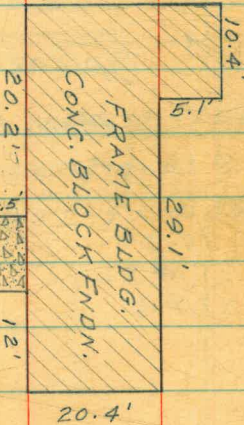 10.4'
5.1'
29.1'
FRAME BLDG.
CONC. BLOCK FNDN.
20.2'
.5'
12'
20.4'